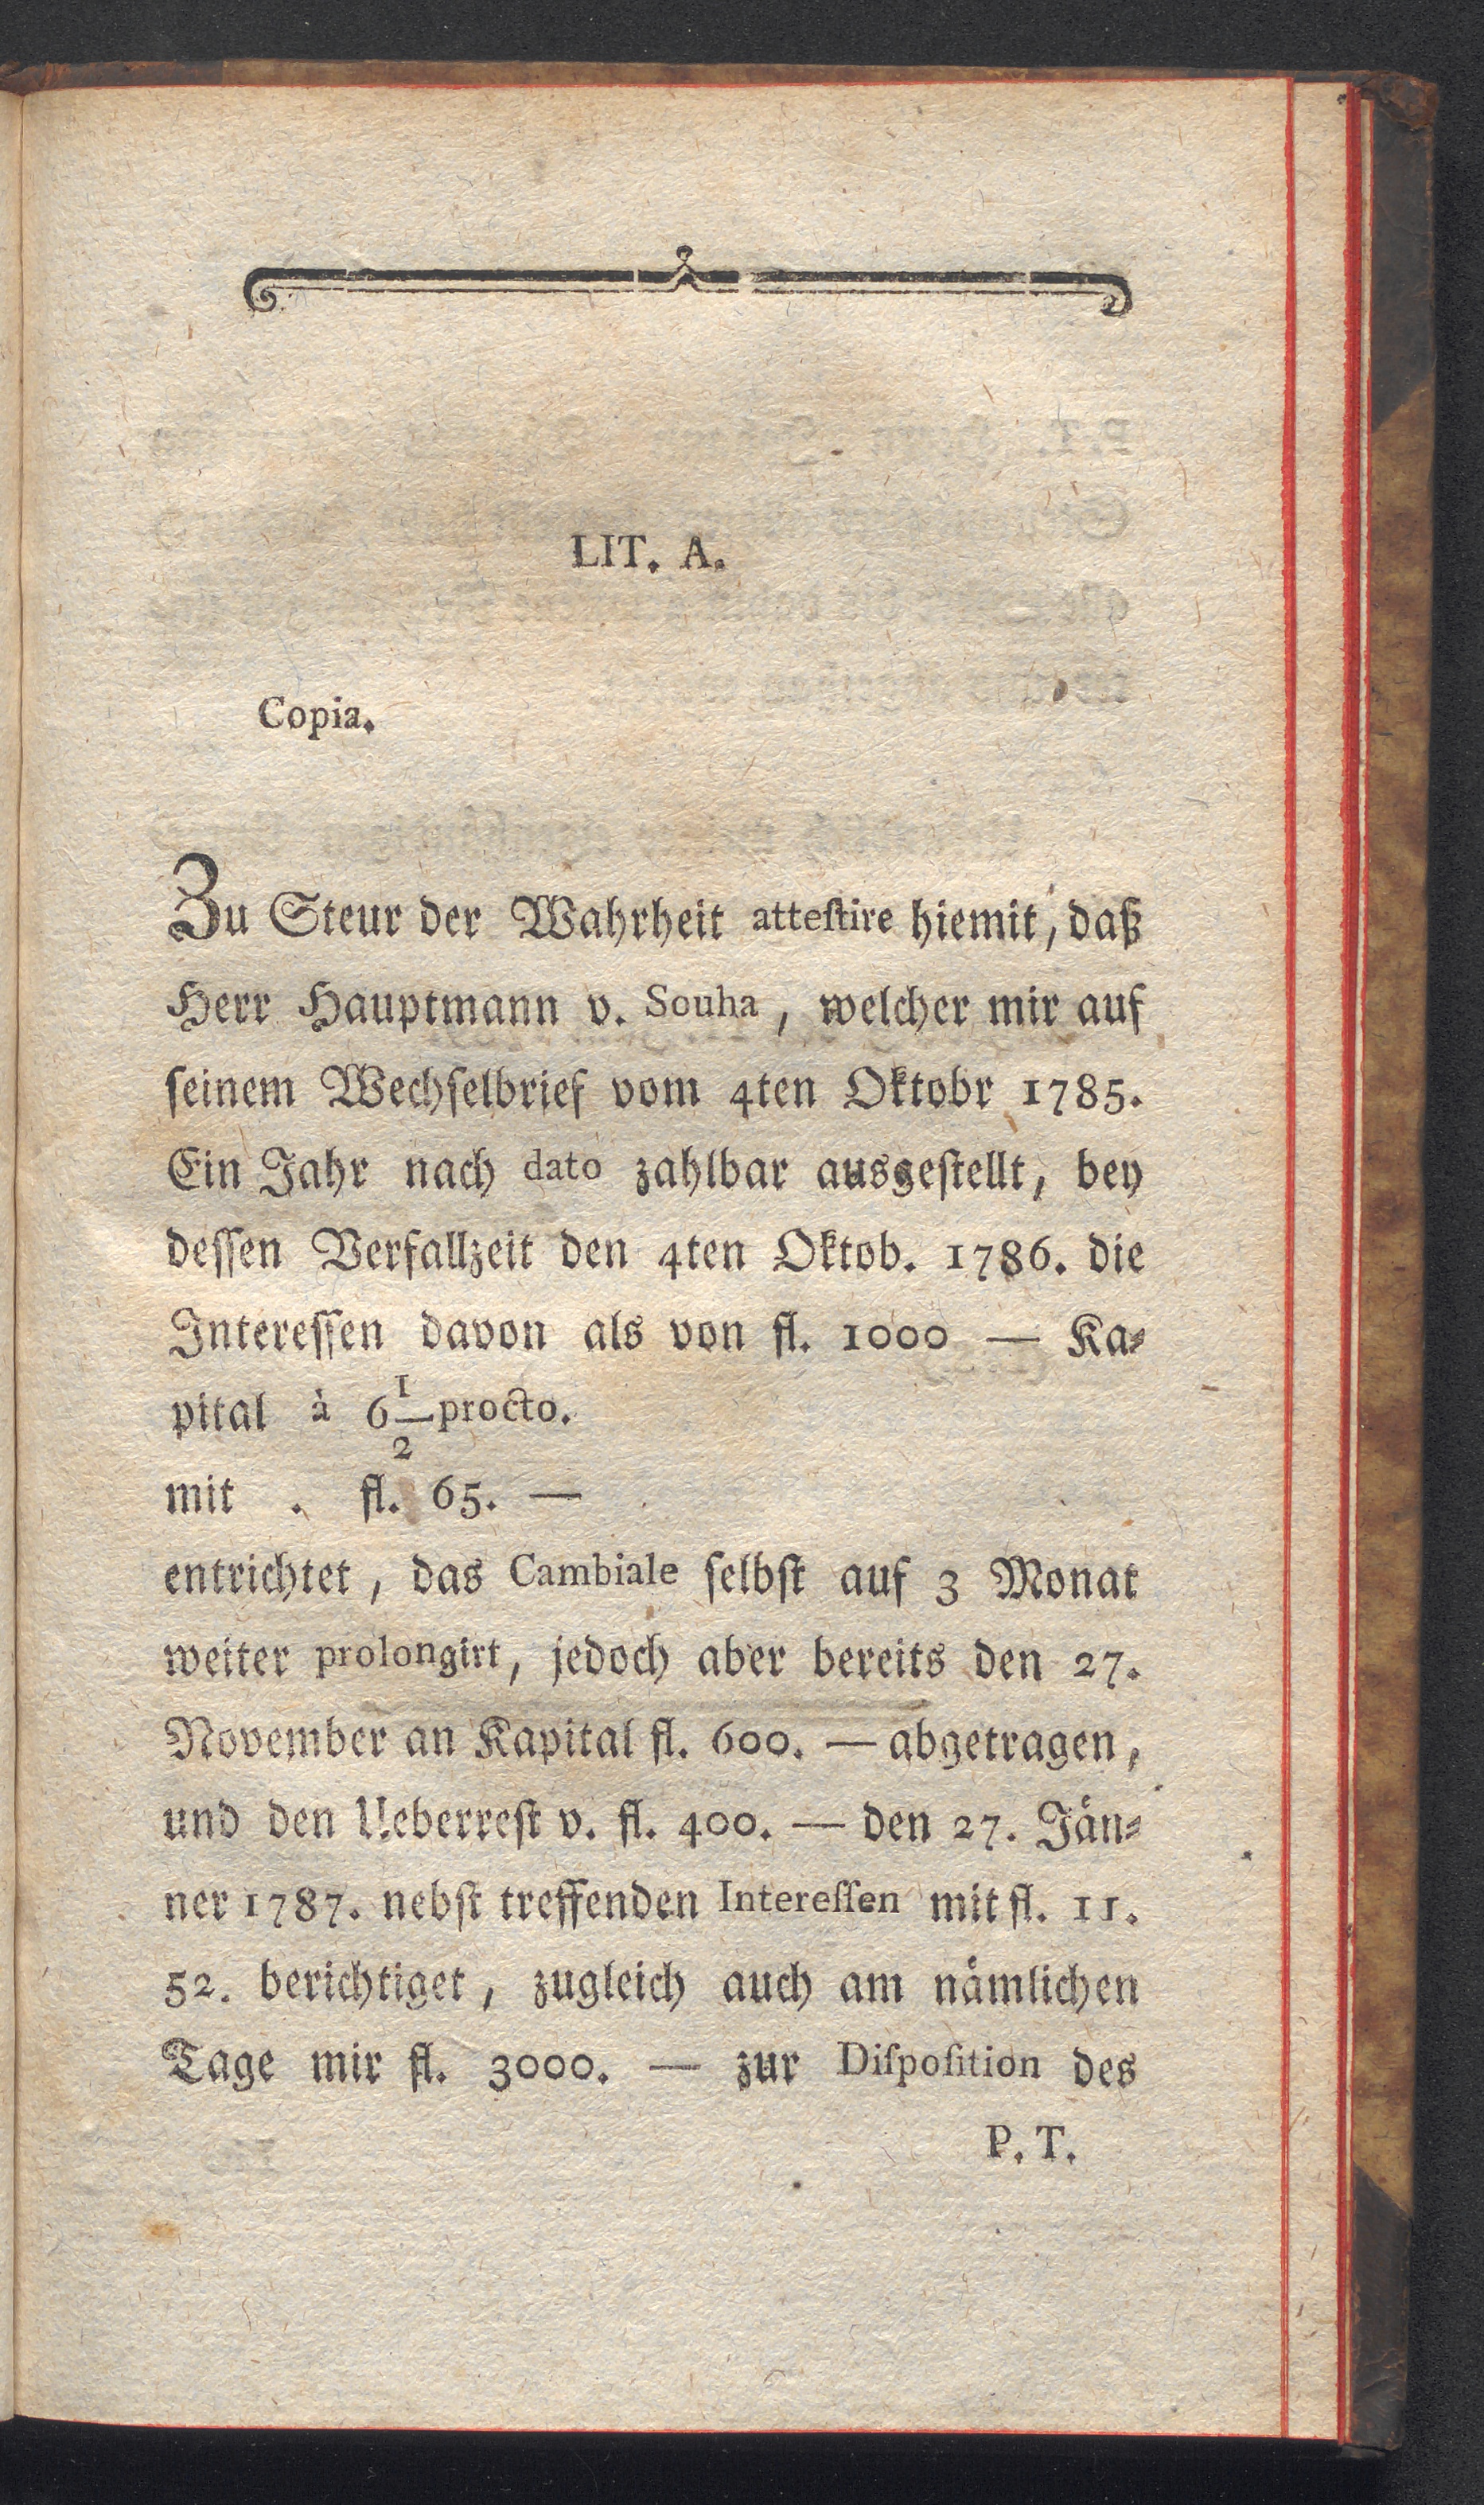 LIT. A.
Copia.
Zu Steur der Wahrheit atteſtire hiemit, daß
Herr Hauptmann v. Souha, welcher mir auf
ſeinem Wechſelbrief vom 4ten Oktobr 1785.
Ein Jahr nach dato zahlbar ausgeſtellt, bey
deſſen Verfallzeit den 4ten Oktob. 1786. die
Intereſſen davon als von fl. 1000 — Ka⸗
pital à 6 1/2 procto.
mit . fl. 65. —
entrichtet, das Cambiale ſelbſt auf 3 Monat
weiter prolongirt, jedoch aber bereits den 27.
November an Kapital fl. 600. — abgetragen,
und den Ueberreſt v. fl. 400. — den 27. Jän⸗
ner 1787. nebſt treffenden Intereſſen mit fl. 11.
52. berichtiget, zugleich auch am nämlichen
Tage mir fl. 3000. — zur Diſpoſition des
P. T.